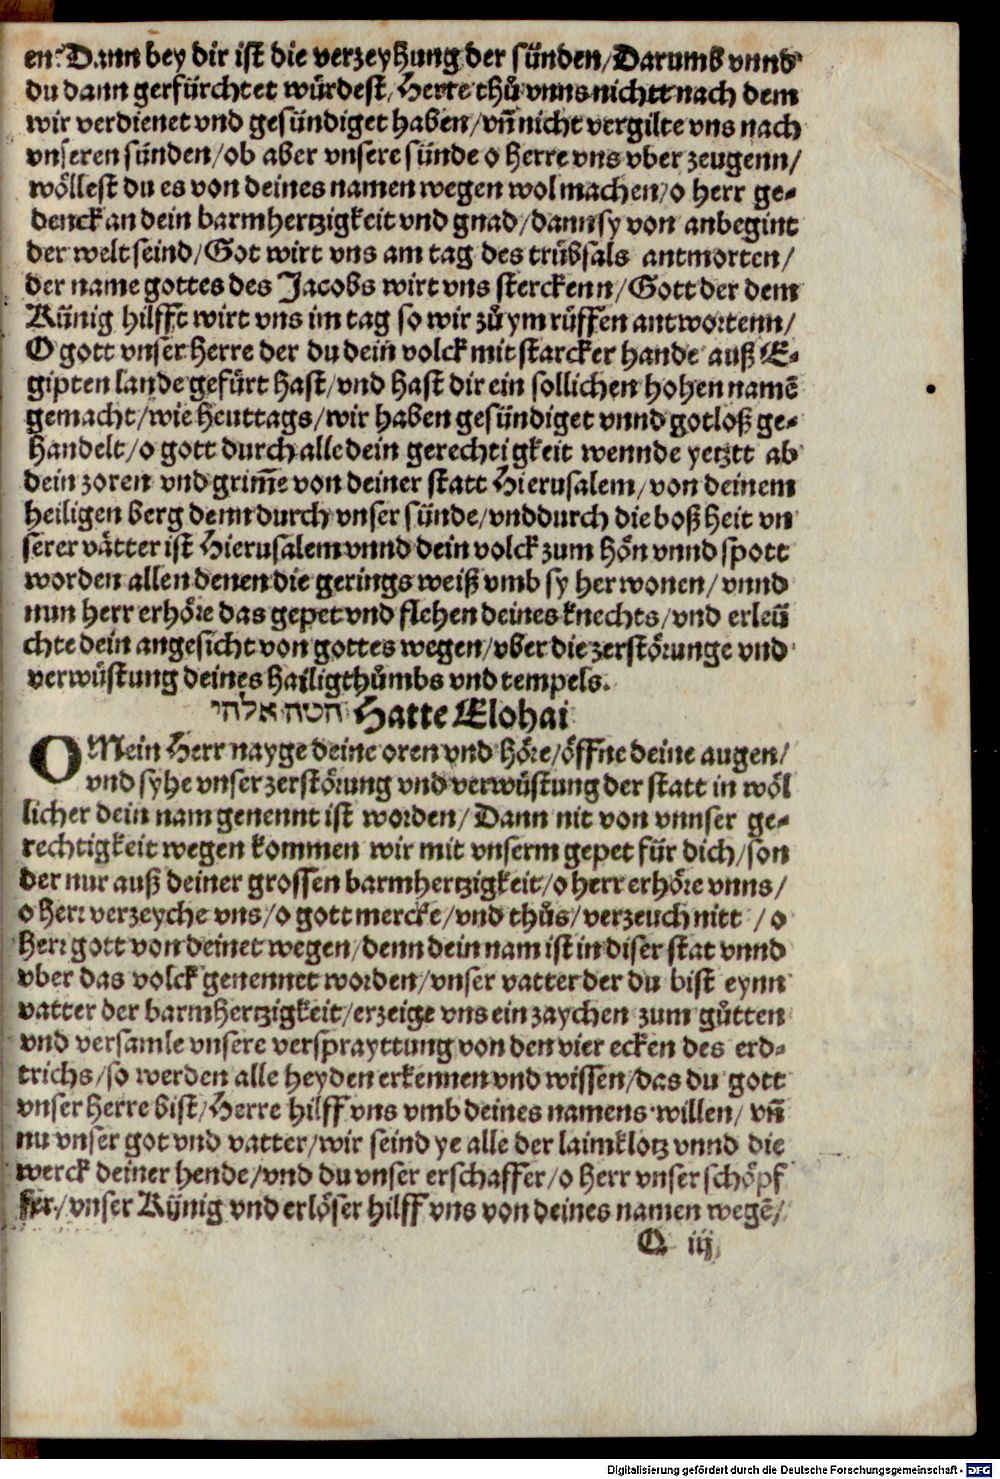 en: Dann bey dir ist die verzeyhung der sünden/Darumb vnnd
du dann gerfürchtet würdest/Herre thů vnns nichtt nach dem
wir verdienet vnd gesündiget haben/vñ nicht vergilte vns nach
vnseren sünden/ob aber vnsere sünde o herre vns vber zeugenn/
wöllest du es von deines namen wegen wol machen/o herr ge-
denck an dein barmhertzigkeit vnd gnad/dann sy von anbegint
der welt seind/Got wirt vns am tag des trübsals antmorten/
der name gottes des Jacobs wirt vns sterckenn/Gott der dem
Künig hilfft wirt vns im tag so wir zů ym rüffen antwortenn/
O gott vnser herre der du dein volck mit starcker hande auß E-
gipten lande gefürt hast/vnd hast dir ein sollichen hohen namẽ
gemacht/wie heuttags/wir haben gesündiget vnnd gotloß ge-
handelt/o gott durch alle dein gerechtigkeit wennde yetztt ab
dein zoren vnd grim̃e von deiner statt Hierusalem/von deinem
heiligen berg denn durch vnser sünde/vnd durch die boßheit vn
serer vätter ist Hierusalem vnnd dein volck zum hön vnnd spott
worden allen denen die gerings weiß vmb sy her wonen/vnnd
nun herr erhöre das gepet vnd flehen deines knechts/vnd erleü
chte dein angesicht von gottes wegen/vber die zerstörunge vnd
verwüstung deines hailigthůmbs vnd tempels.
הטה אלהי Hatte Elohai
O Mein Herr nayge deine oren vnd höre/öffne deine augen/
vnd syhe vnser zerstörung vnd verwüstung der statt in wöl
licher dein nam genennt ist worden/Dann nit von vnnser ge-
rechtigkeit wegen kommen wir mit vnserm gepet für dich/son
der nur auß deiner grossen barmhertzigkeit/o herr erhöre vnns/
o herr verzeyche vns/o gott mercke/vnd thůs/verzeuch nitt/o
herr gott von deinet wegen/denn dein nam ist in diser stat vnnd
vber das volck genennet worden/vnser vatter der du bist eynn
vatter der barmhertzigkeit/erzeige vns ein zaychen zum gůtten
vnd versamle vnsere versprayttung von den vier ecken des erd-
trichs/so werden alle heyden erkennen vnd wissen/das du gott
vnser herre bist/Herre hilff vns vmb deines namens willen/vñ
nu vnser got vnd vatter/wir seind ye alle der laimklotz vnnd die
werck deiner hende/vnd du vnser erschaffer/o herr vnser schöpf
fer/vnser Künig vnd erlöser hilff vns von deines namen wegẽ/
Q iij
Digitalisierung gefördert durch die Deutsche Forschungsgemeinschaft - DFG